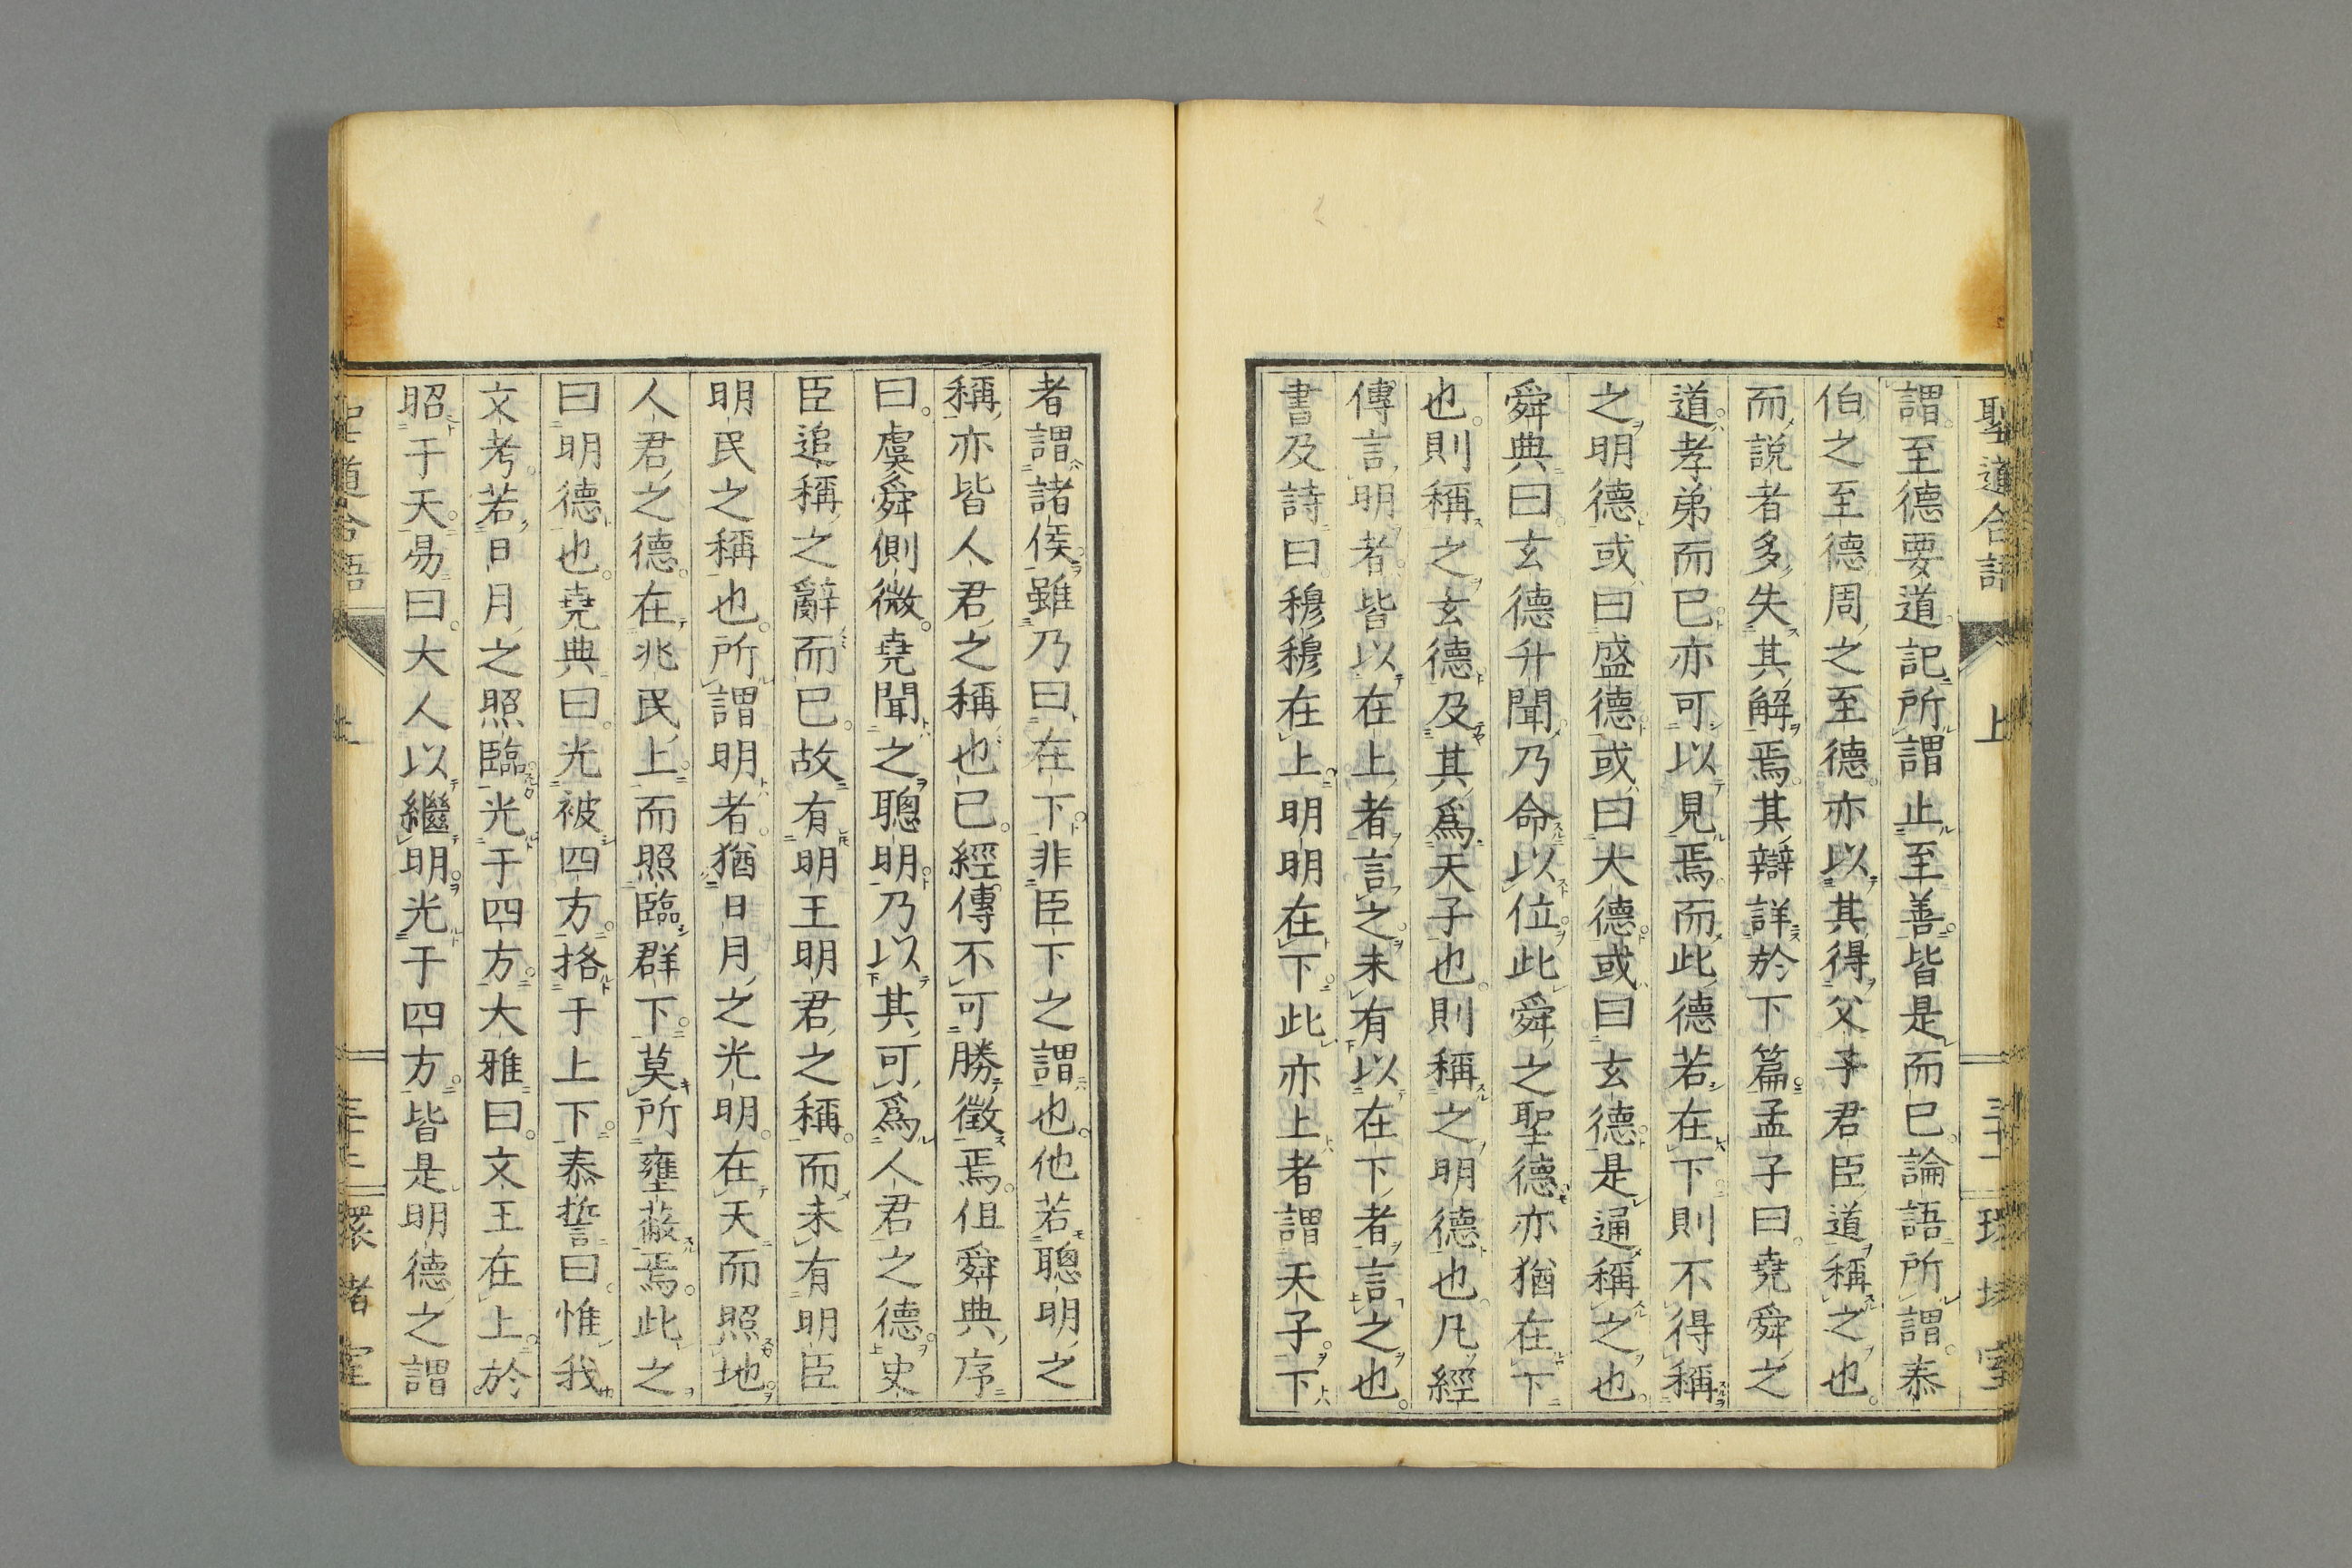 聖道合語 上
謂至德要道記所謂止至善皆是而已論語所謂泰
伯之至德周之至德亦以其得父子君臣道稱之也
而說者多失其解焉其辯詳於下篇孟子曰堯舜之
道孝弟而已亦可以見焉而此德若在下則不得稱
之明德或曰盛德或曰大德或曰玄德是通稱之也
舜典曰玄德升聞乃命以位此舜之聖德亦猶在下
也則稱之玄德及其爲天子也則稱之明德也凡經
傳言明者皆以在上者言之未有以在下者言之也
書及詩曰穆穆在上明明在下此亦上者謂天子下
者謂諸侯雖乃曰在下非臣下之謂也他若聰明之
稱亦皆人君之稱也已經傳不可勝徵焉伹舜典序
曰虞舜側微堯聞之聰明乃以其可爲人君之德史
臣追稱之辭而已故有明王明君之稱而未有明臣
明民之稱也所謂明者猶日月之光明在天而照地
人君之德在兆民上而照臨群下莫所壅蔽焉此之
曰明德也堯典曰光被四方挌于上下泰誓曰惟我
文考若日月之照臨光于四方大雅曰文王在上於
昭于天易曰大人以繼明光于四方皆是明德之謂